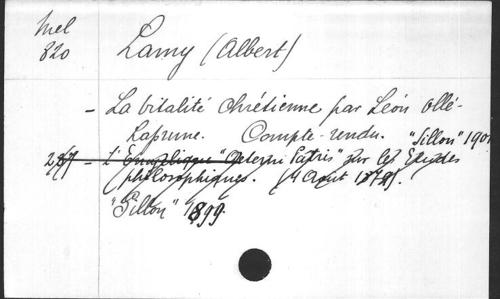 Mel
820
Lamy (Albert)
- La vitalité chrétienne par Léon Ollé-
Laprune. Compte-rendu. "Sillon" 1901
267 - L'Encyclique "Aeterni Patris" sur les Etudes
philosophiques. (4 Août 1879).
"Sillon" 1899.